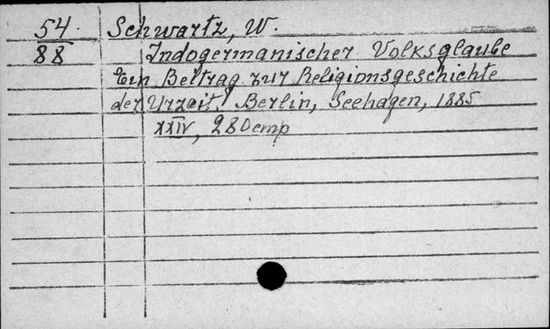 54. Schwartz, W.
88 Indogermanischer Volksglaube
Ein Beitrag zur Religionsgeschichte
der Urzeit. Berlin, Seehagen, 1885
XXIV, 280 cmp